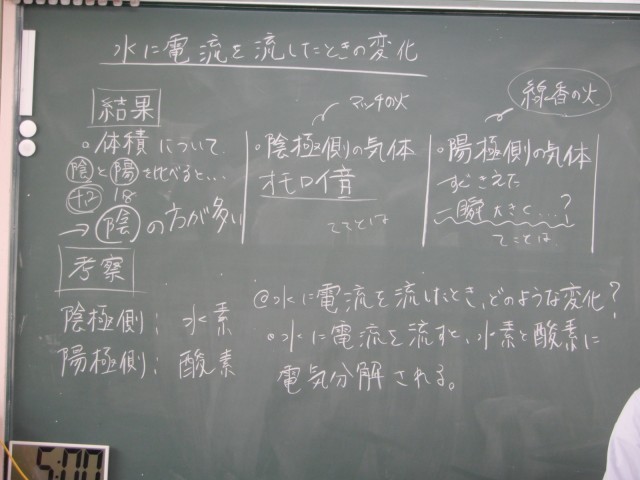 水に電流を流したときの変化
結果
。体積について
陰と陽を比べると…
42 18
→陰の方が多い
マッチの火
。陰極側の気体
オモロイ音
てことは
線香の火
。陽極側の気体
すぐきえた
一瞬大きく…?
てことは
考察
陰極側: 水素
陽極側: 酸素
@水に電流を流したとき、どのような変化?
。水に電流を流すと、水素と酸素に
電気分解される。
5:00